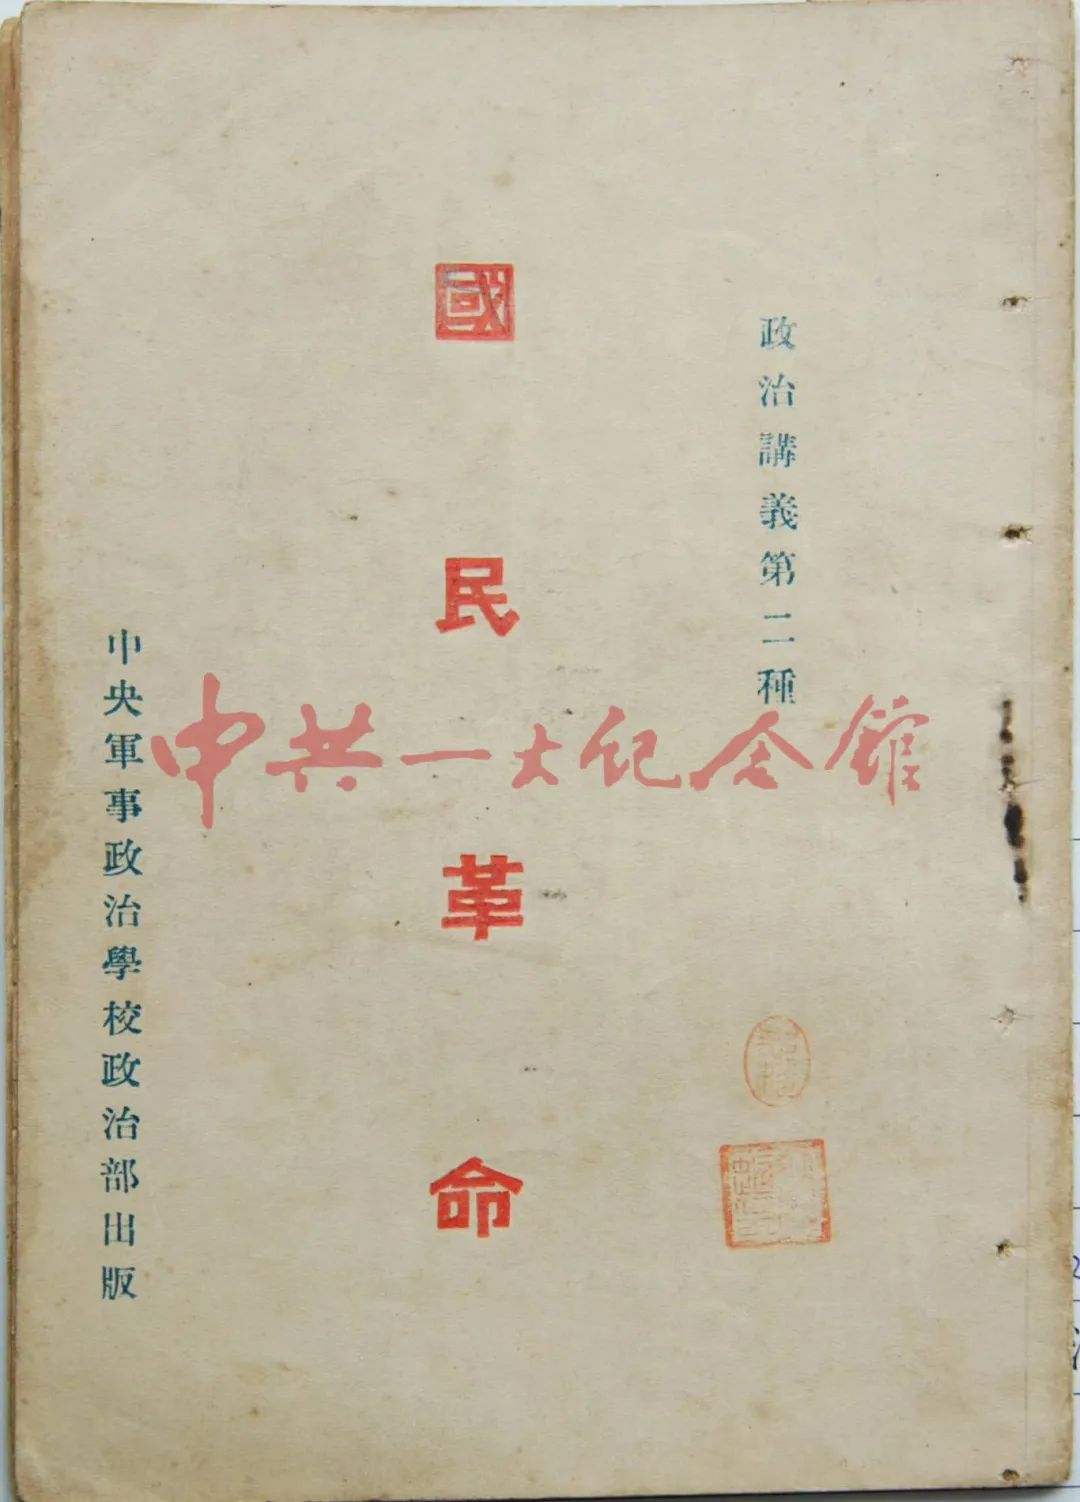 政治講義第二種
國民革命
中央軍事政治學校政治部出版
中共一大纪念馆